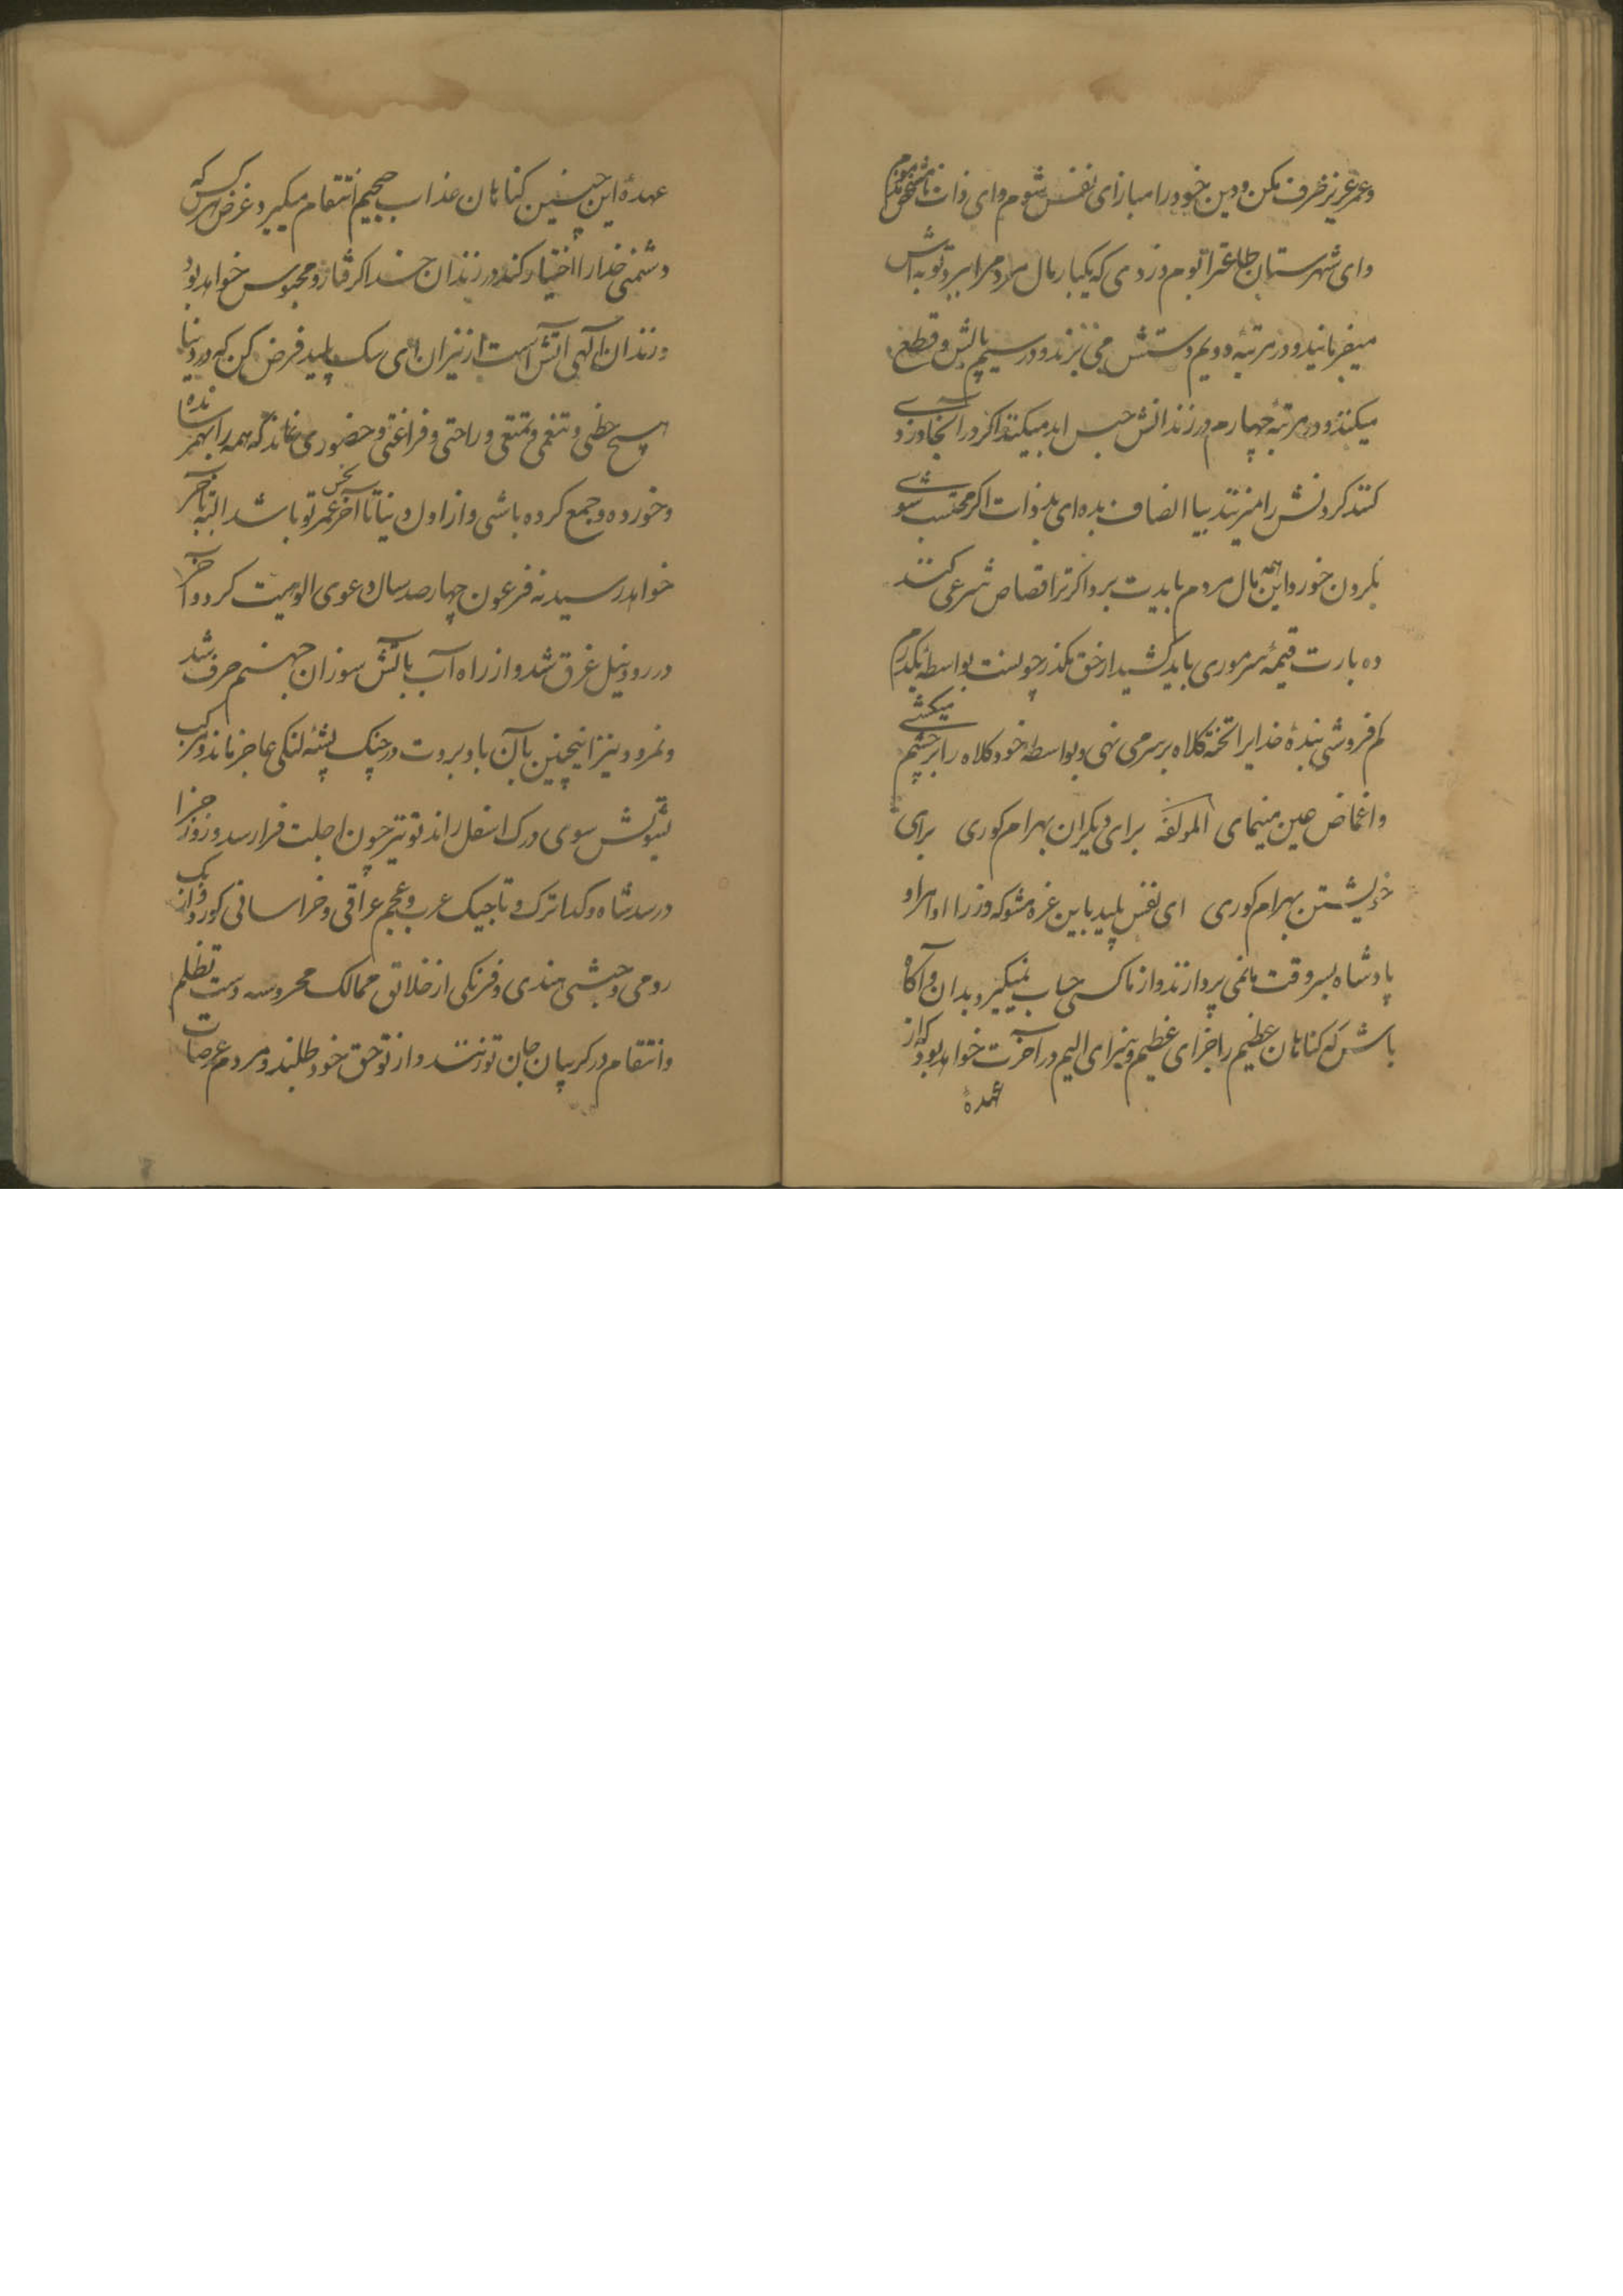 و عمر عزیز خرف مکن و دین خود را مباز ای نفس شوم وای ذات نامشخص
وای شهرستان طاعترا بوم دزدی که یکبار مال مردم را ببرد توبه اش
میفرمایند و در مرتبه دویم دستش می بُرند و در سیم پایش قطع
میکنند و در مرتبهٔ چهارم در زندانش حبس ابد میکنند اگر در آنجا دزدی
کند گردنش را میزنند بیا انصاف بده ای بد ذات اگر محتسب شوی
بگردن خود و این همه مال مردم بایدت برد اگر ترا قصاص شرعی کنند
ده بارت قیمهٔ سرموری باید کشید از حق مگذر چونست بواسطهٔ یکدرم
کم فروشی بندهٔ خدایرا تخته کلاه بر سر می نهی و بواسطه خود کلاه را بر چشم میکشی
و اغماض عین مینمای المولفه برای دیگران بهرام کوری برای
خویشتن بهرام کوری ای نفس پلید باین غره مشو که وزرا و امرا و
پادشاه بسر وقت ما نمی پردازند و از ما کسی حساب نمیگیرد بدان و آگاه
باش که کناهان عظیم را جزای عظیم و سزای الیم در آخرت خواهد بود که از
عهدهٔ
عهدهٔ این چنین کناهان عذاب جحیم انتقام میگیرد غرض هر کس که
دشمنی خدا را اختیار کند در زندان خدا گرفتار و محبوس خواهد بود
و زندان الهی آتش است از نیران ای سک پلید فرض کن که در دنیا
هیچ حظی و تنعمی و تمتعی و راحتی و فراغتی و حضوری نماند که همه را بهم رسانده
و خورده و جمع کرده باشی و از اول دنیا تا آخر عمر نحس تو باشد البته بآخر
خواهد رسید نه فرعون چهار صد سال دعوی الوهیت کرد و آخر
در رود نیل غرق شد و از راه آب بآتش سوزان جهنم حرف شد
و نمرود نیز اینچنین بآن باد بروت در چنک پشهٔ لنکی عاجز ماند و مرکب
شوش سوی درک اسفل راند تو نیز چون اجلت فرا رسد و روز جزا
در رسد شاه و کدا ترک و تاجیک عرب و عجم عراقی و خراسانی کورد و ازبک
رومی و حبشی هندی و فرنکی از خلائق ممالک محروسه دست تظلم
و انتقام در کریبان جان تو زنند و از تو حق خود طلبند و مردم عرصات